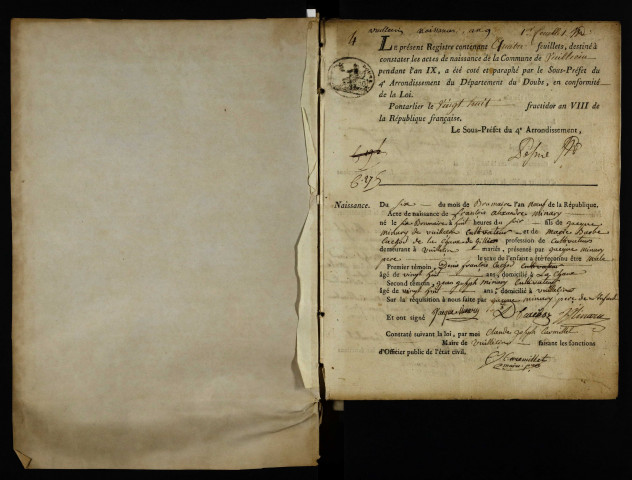 4 vuillecin naissances an 9 1er feuillet
Le présent Registre contenant quatre feuillets, destiné à
constater les actes de naissance de la Commune de Vuillecin
pendant l'an IX, a été coté et paraphé par le Sous-Préfet du
4e Arrondissement du Département du Doubs, en conformité
de la Loi.
Pontarlier le vingt huit fructidor an VIII de
la République française.
Le Sous-Préfet du 4e Arrondissement,
Naissance. Du six du mois de Brumaire l'an neuf de la République.
Acte de naissance de françois alexandre minary
né le six Brumaire à huit heures du soir fils de jacque
minary de vuillecin cultivateur et de marie Barbe
de la profession de cultivateurs
demeurant à vuillecin mariés, présenté par jacque minary
pere le sexe de l'enfant a été reconnu être male
Premier témoin, Denis françois cultivateur
âgé de vingt huit ans, domicilié à La
Second témoin, jean joseph minary cultivateur
âgé de vingt huit ans, domicilié à vuillecin
Sur la réquisition à nous faite par jacque minary pere de l'enfant
Et ont signé
Constaté suivant la loi, par moi Claude joseph
Maire de vuillecin faisant les fonctions
d'Officier public de l'état civil.